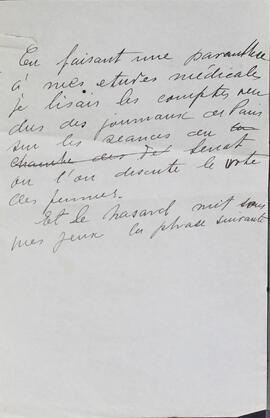 En faisant une paranthese
à mes etudes medicale
je lisais les comptes ren
dus des journaux de Paris
sur les seances du la
chambre des del Senat
ou l'on discute le vote
des femmes.
Et le hasard mit sous
mes yeux la phrase suivante